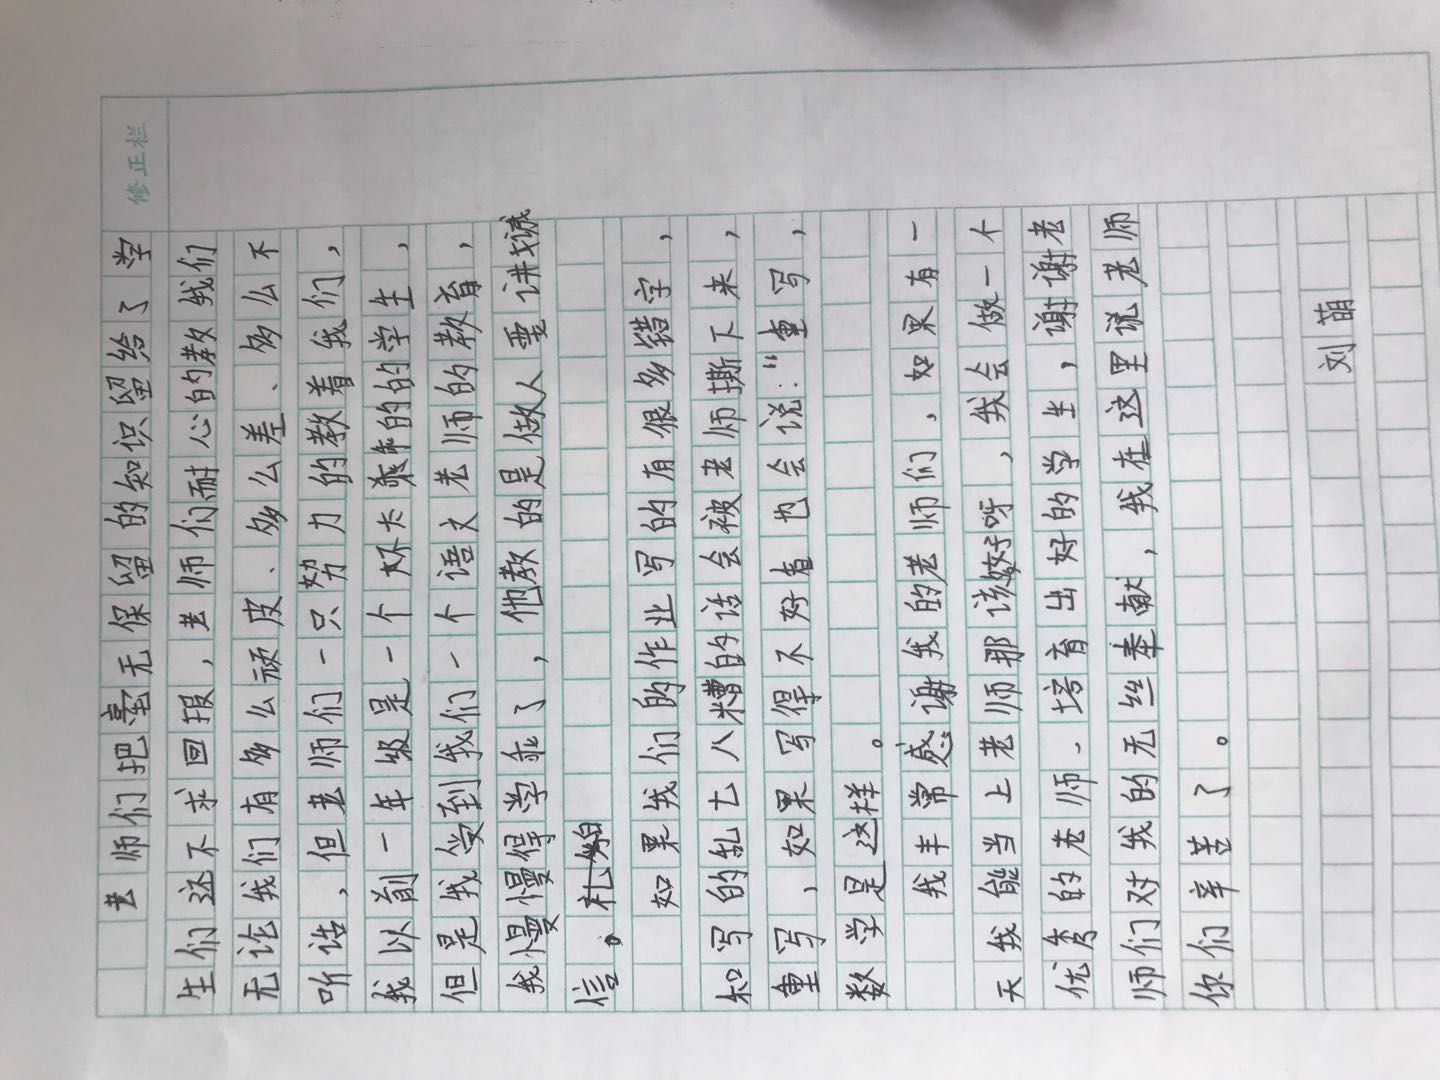 修正栏
老师们把毫无保留的知识留给了学
生们还不求回报，老师们耐心的教我们
无论我们有多么顽皮、多么差、多么不
听话，但老师们一只努力的教着我们，
我以前一年级是一个坏大乖的的学生，
但是我受到我们一个语文老师的教育，
我慢慢得学乖了，他教的是做人要讲诚
信。
如果我们的作业写的有很多错字，
和写的乱七八糟的话会被老师撕下来，
重写，如果写得不好看也会说：“重写，
数学是这样。
我丰常感谢我的老师们，如果有一
天我能当上老师那该好呀，我会做一个
优秀的老师、培育出好的学生，谢谢老
师们对我的无丝奉献，我在这里说老师
你们辛苦了。
刘萌